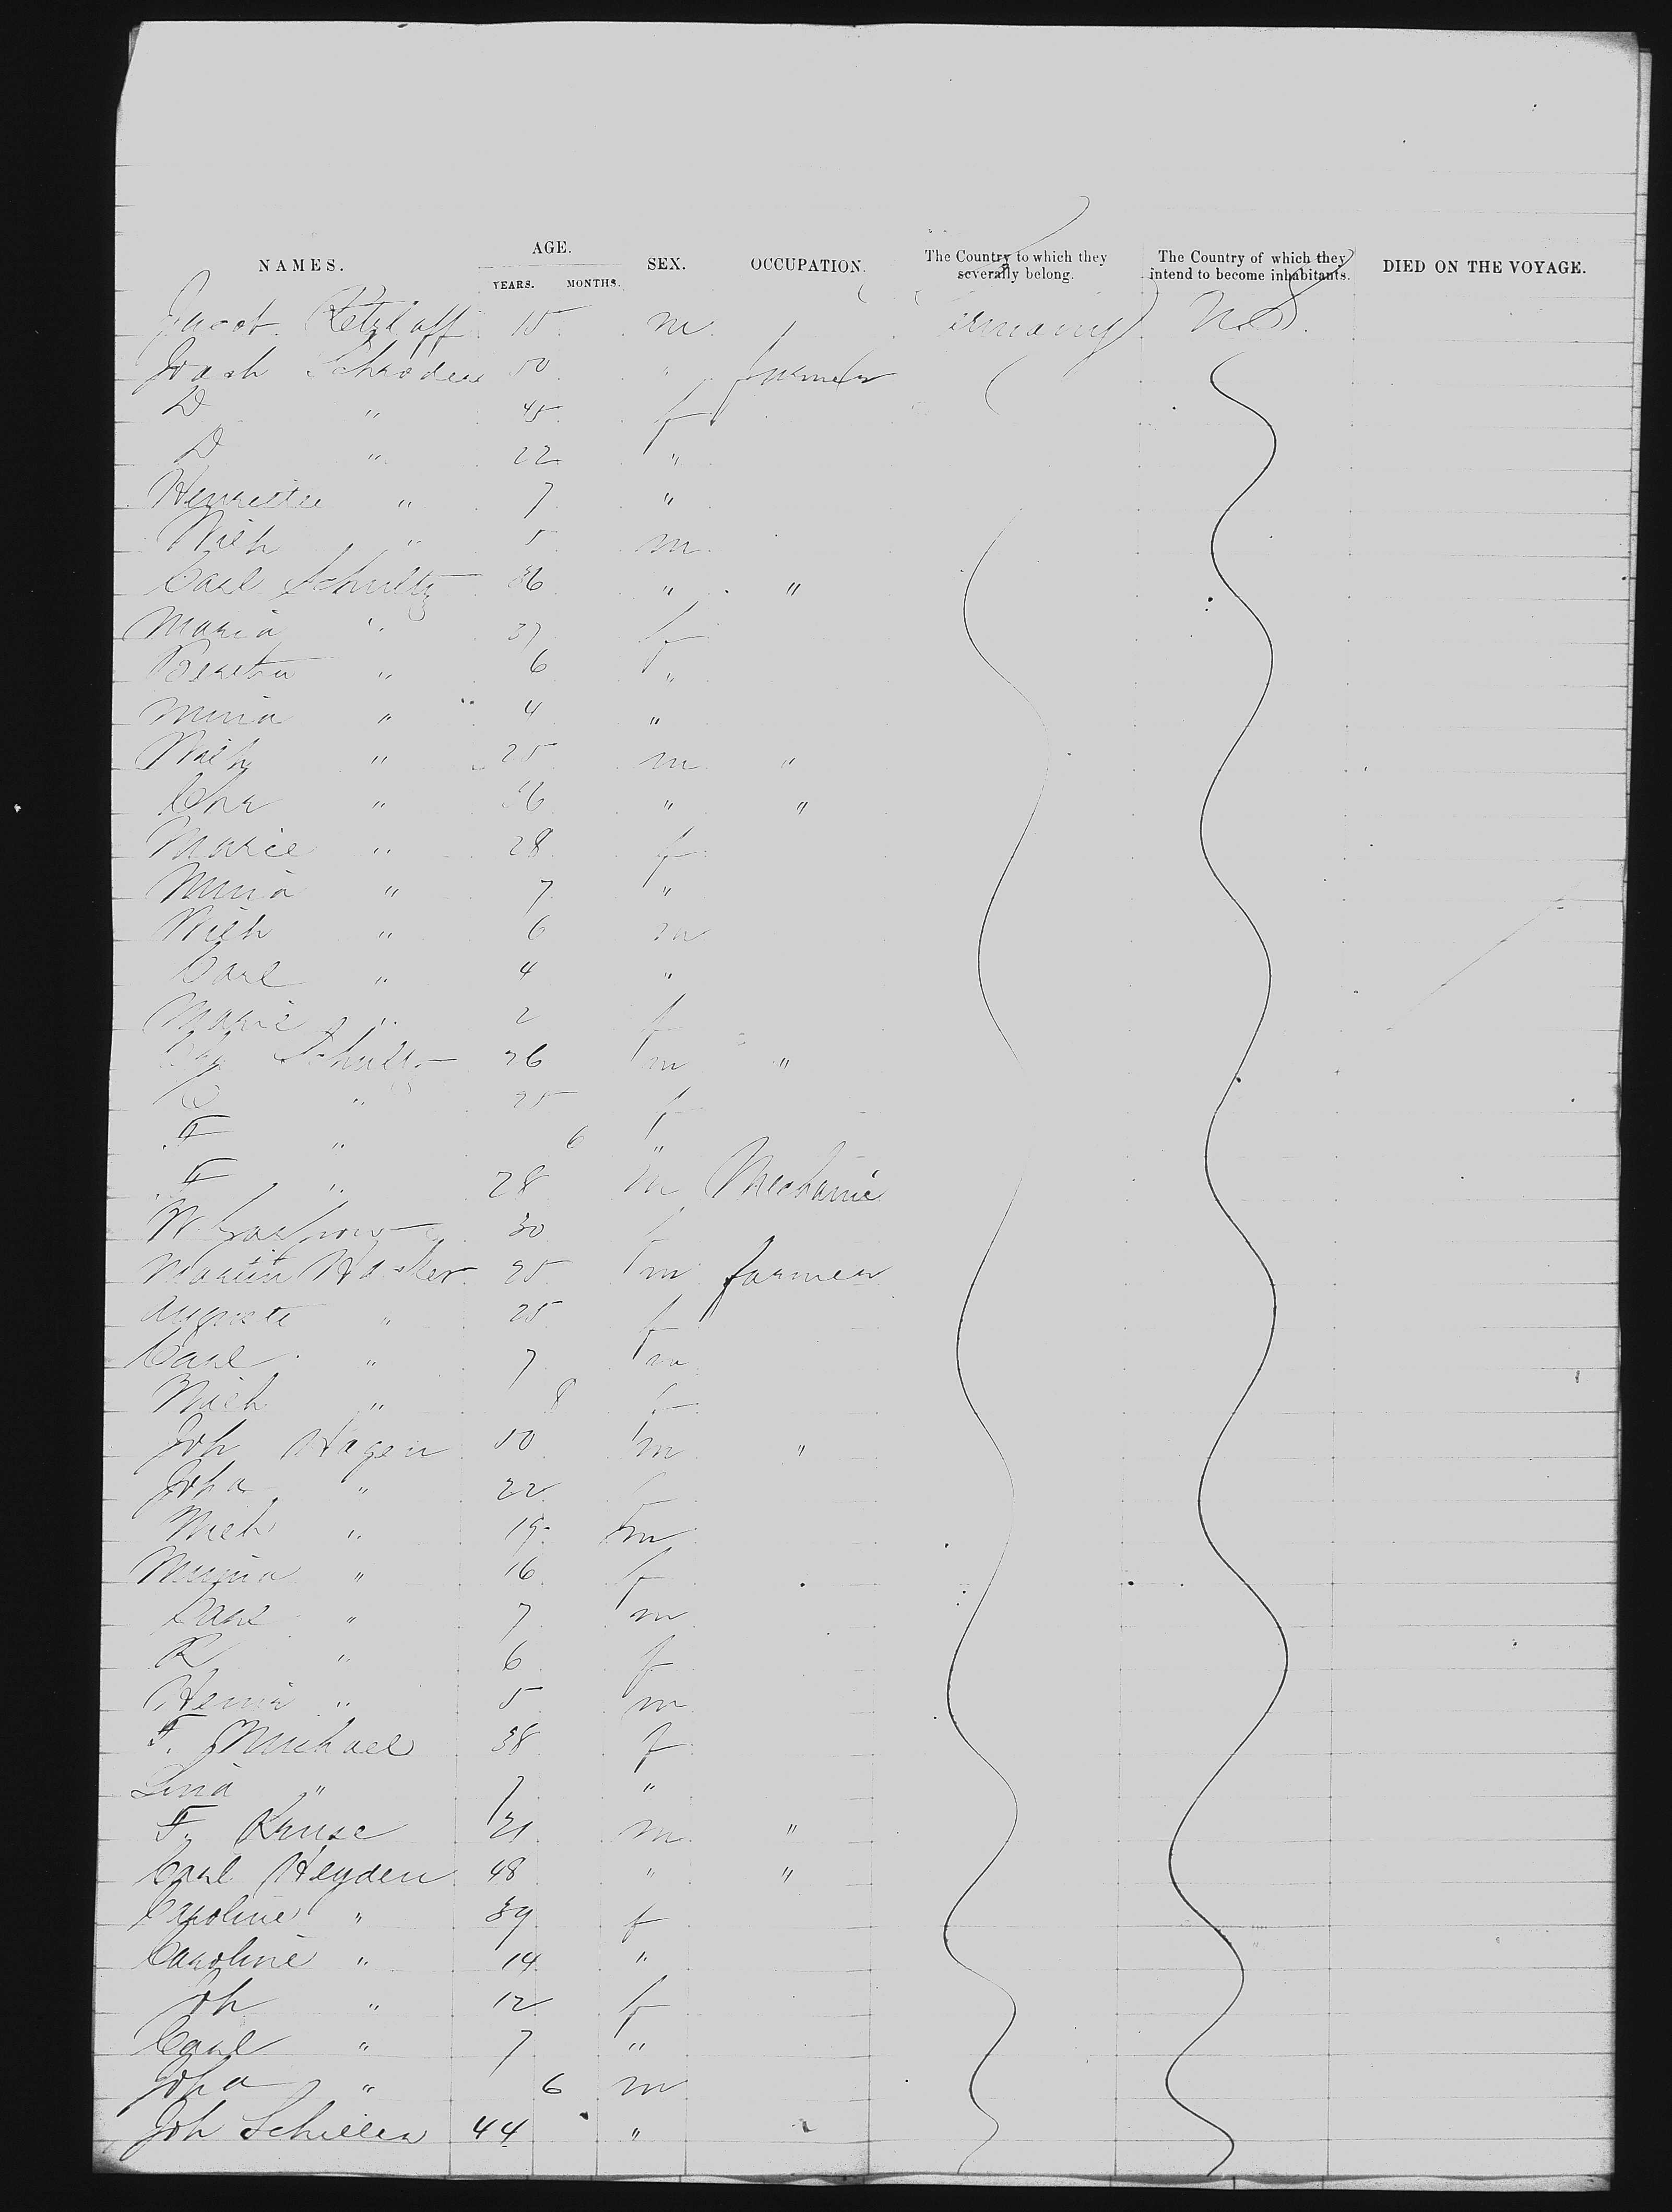 NAMES. AGE. YEARS. MONTHS. SEX. OCCUPATION. The Country to which they severally belong. The Country of which they intend to become inhabitants. DIED ON THE VOYAGE.
Jacob Retzlaff 15 m
Joach Schroder 50 " farmer
D " 45 f
D " 22 "
Henriette " 7 "
Wilh " 5 m
Carl Schultz 36 " "
Maria " 37 f
Bertha " 6 "
Mina " 4 "
Wilh " 25 m "
Chr " 36 " "
Marie " 28 f
Mina " 7 "
Wilh " 6 m
Carl " 4 "
Marie " 2 f
Schultz 26 m "
" 25 f
F " 6 "
F " 28 m Mechanic
W 30 f
Martin 25 m farmer
Auguste " 25 f
Carl " 7 m
" 8 f
Joh Hagen 50 m "
Joha " 22 f
" 19 m
Minna " 16 f
Carl " 7 m
R " 6 f
" 5 m
F. Michael 38 f
Lina " 7 "
F. Kruse 21 m "
Carl Heyden 48 " "
Caroline " 39 f
Caroline " 14 "
Joh " 12 f
Carl " 7 "
Joha " 6 m
Joh Schiller 44 "